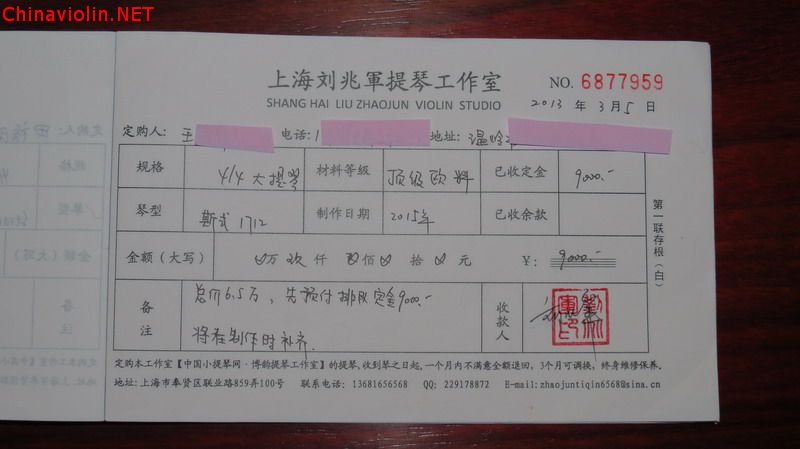 Chinaviolin.NET
上海刘兆軍提琴工作室
SHANG HAI LIU ZHAOJUN VIOLIN STUDIO
NO. 6877959
2013 年 3 月 5 日
定购人: 王 电话: 1 地址: 温岭
规格 4/4 大提琴 材料等级 顶级欧料 已收定金 9000.-
琴型 斯式 1712 制作日期 2015年 已收余款
金额（大写） 万 玖 仟 佰 拾 元 ¥: 9000.-
备注 总价6.5万、先预付排队定金9000.-
将在制作时补齐.
收款人
第一联存根（白）
定购本工作室【中国小提琴网·博韵提琴工作室】的提琴,收到琴之日起,一个月内不满意全额退回,3个月可调换,终身维修保养。
地址: 上海市奉贤区联业路859弄100号 联系电话: 13681656568 QQ: 229178872 E-mail:zhaojuntiqin6568@sina.cn